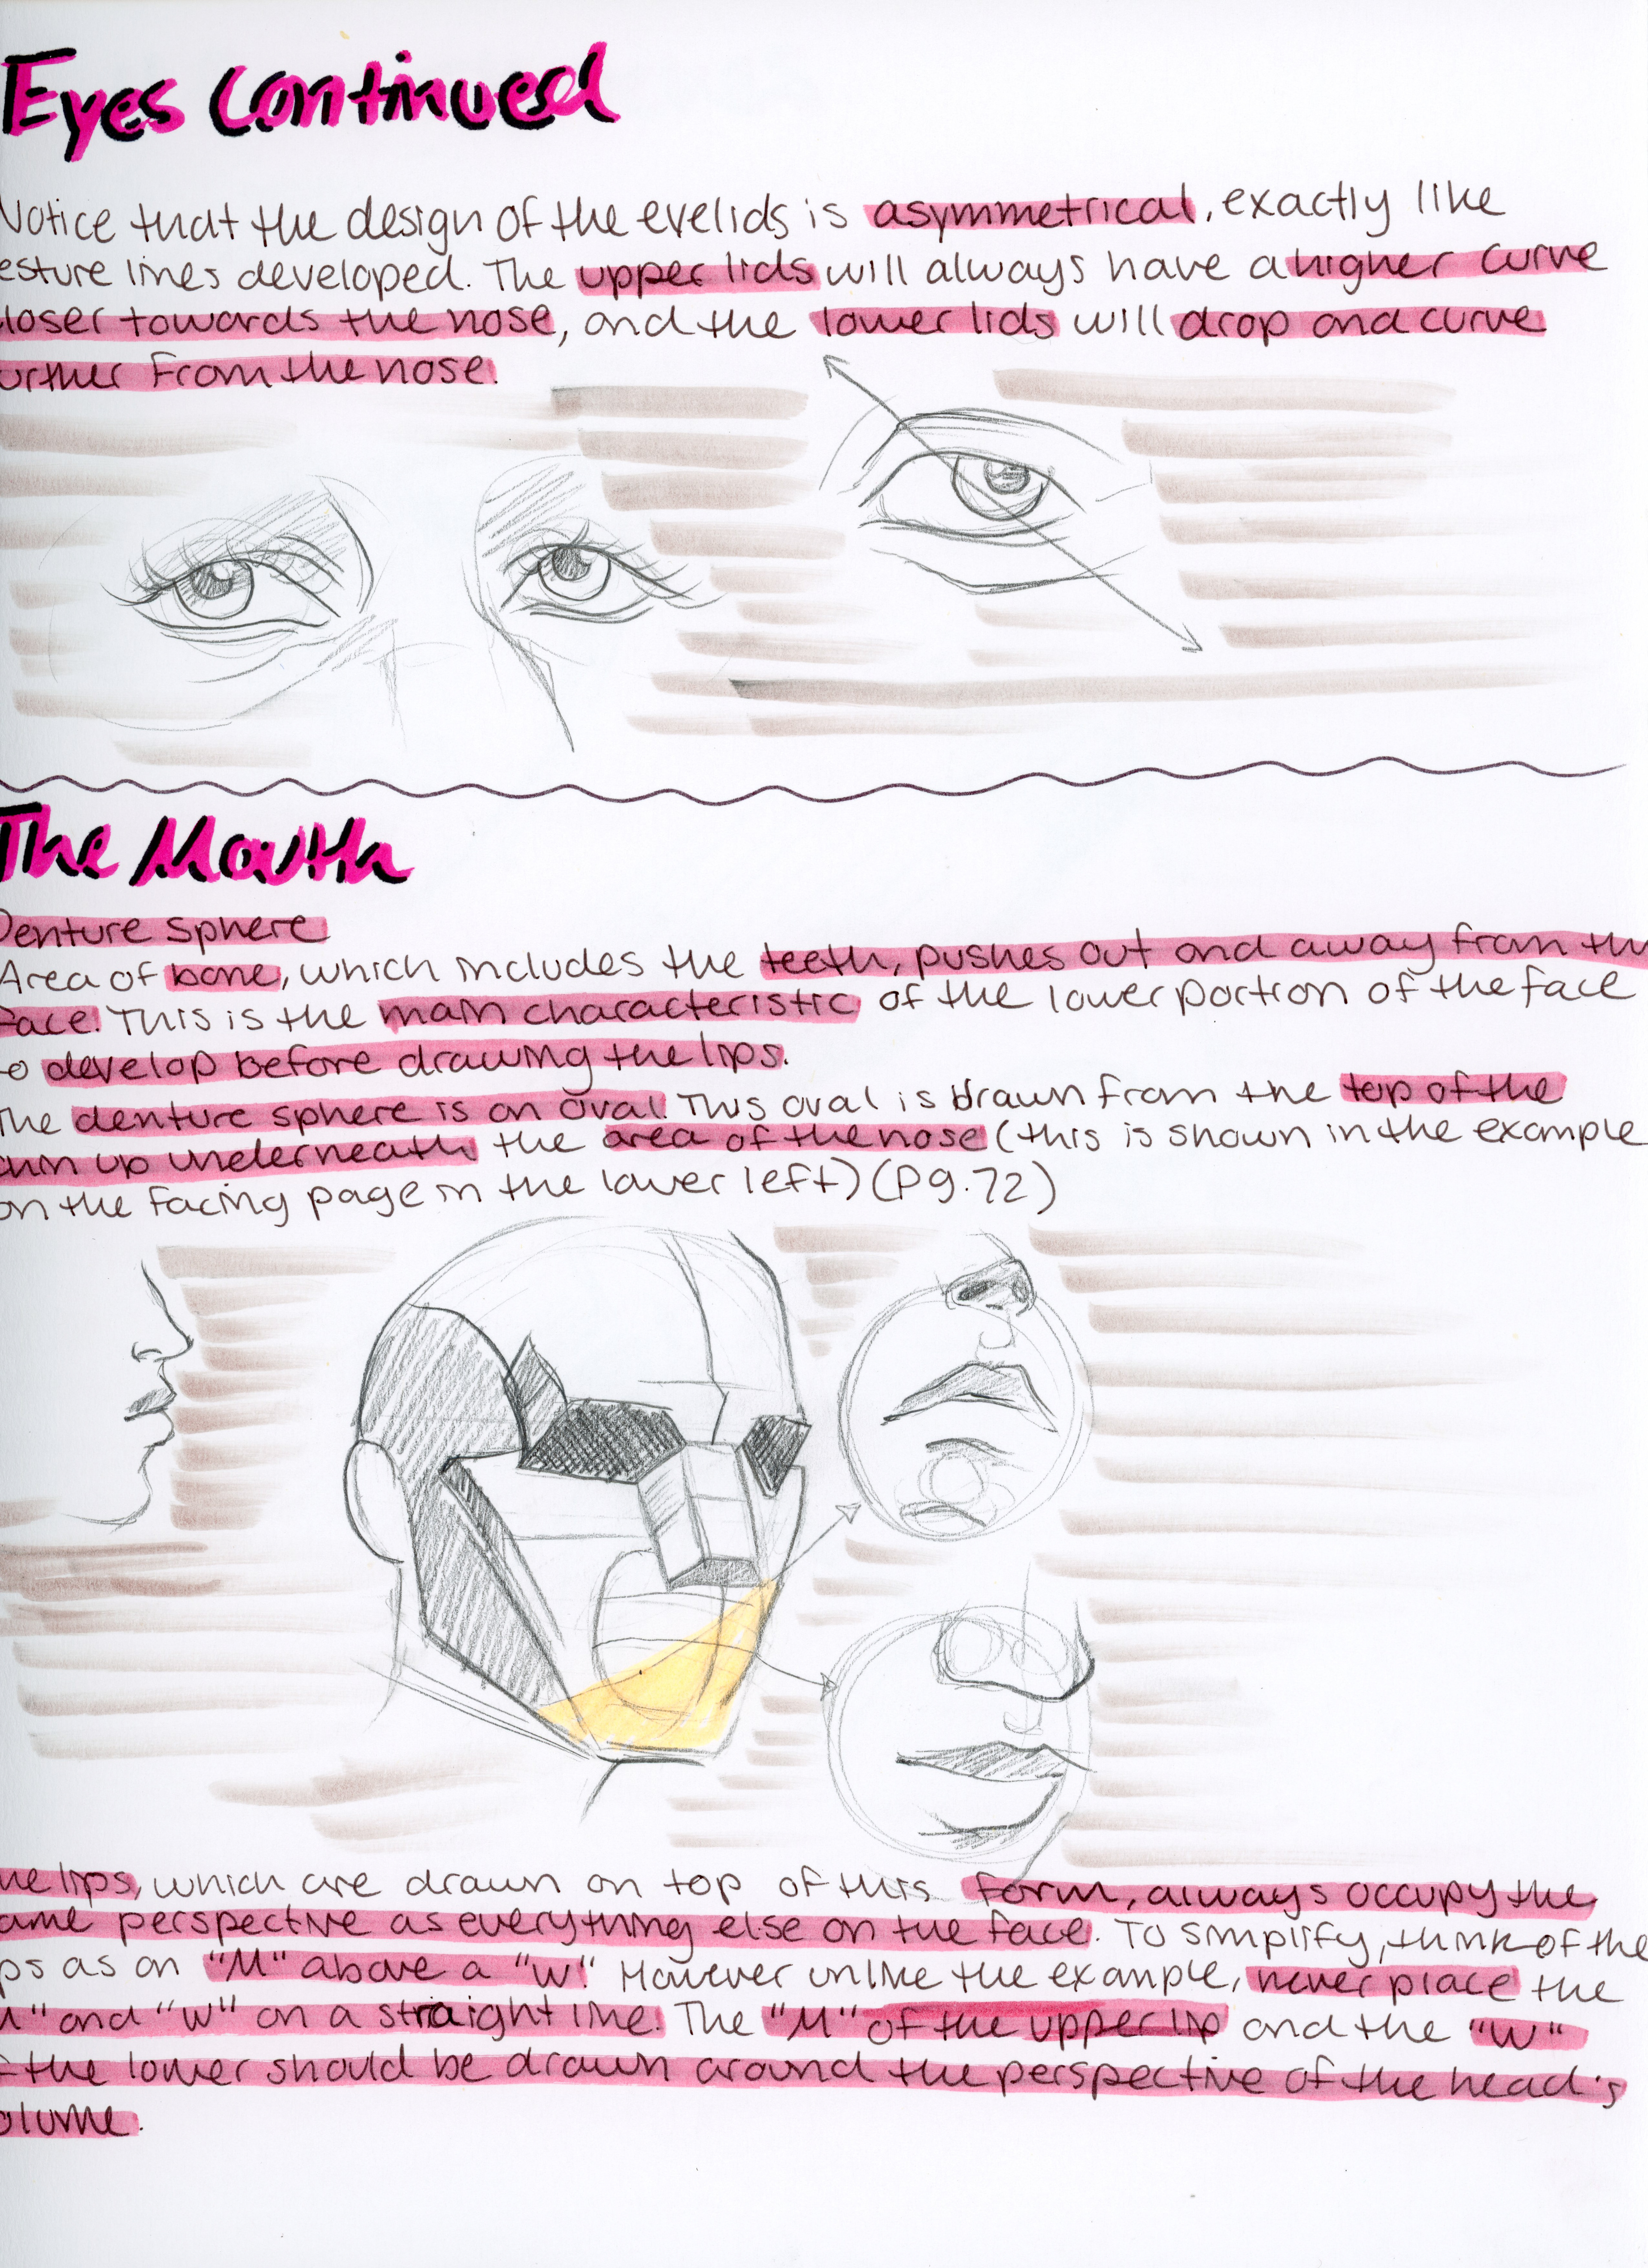 Eyes Continued
Notice that the design of the eyelids is asymmetrical, exactly like
esture lines developed. The upper lids will always have a higher curve
loser towards the nose, and the lower lids will drop and curve
urther from the nose.
The Mouth
Denture Sphere
Area of bone, which includes the teeth, pushes out and away from th
Face. This is the main characteristic of the lower portion of the face
to develop before drawing the lips.
The denture sphere is an oval. This oval is drawn from the top of the
chin up underneath the area of the nose (this is shown in the example
on the facing page in the lower left) (Pg. 72)
he lips, which are drawn on top of this form, always occupy the
ame perspective as everything else on the face. To simplify, think of the
ps as an "M" above a "W". However unlike the example, never place the
M" and "W" on a straight line. The "M" of the upper lip and the "W"
f the lower should be drawn around the perspective of the head's
olume.